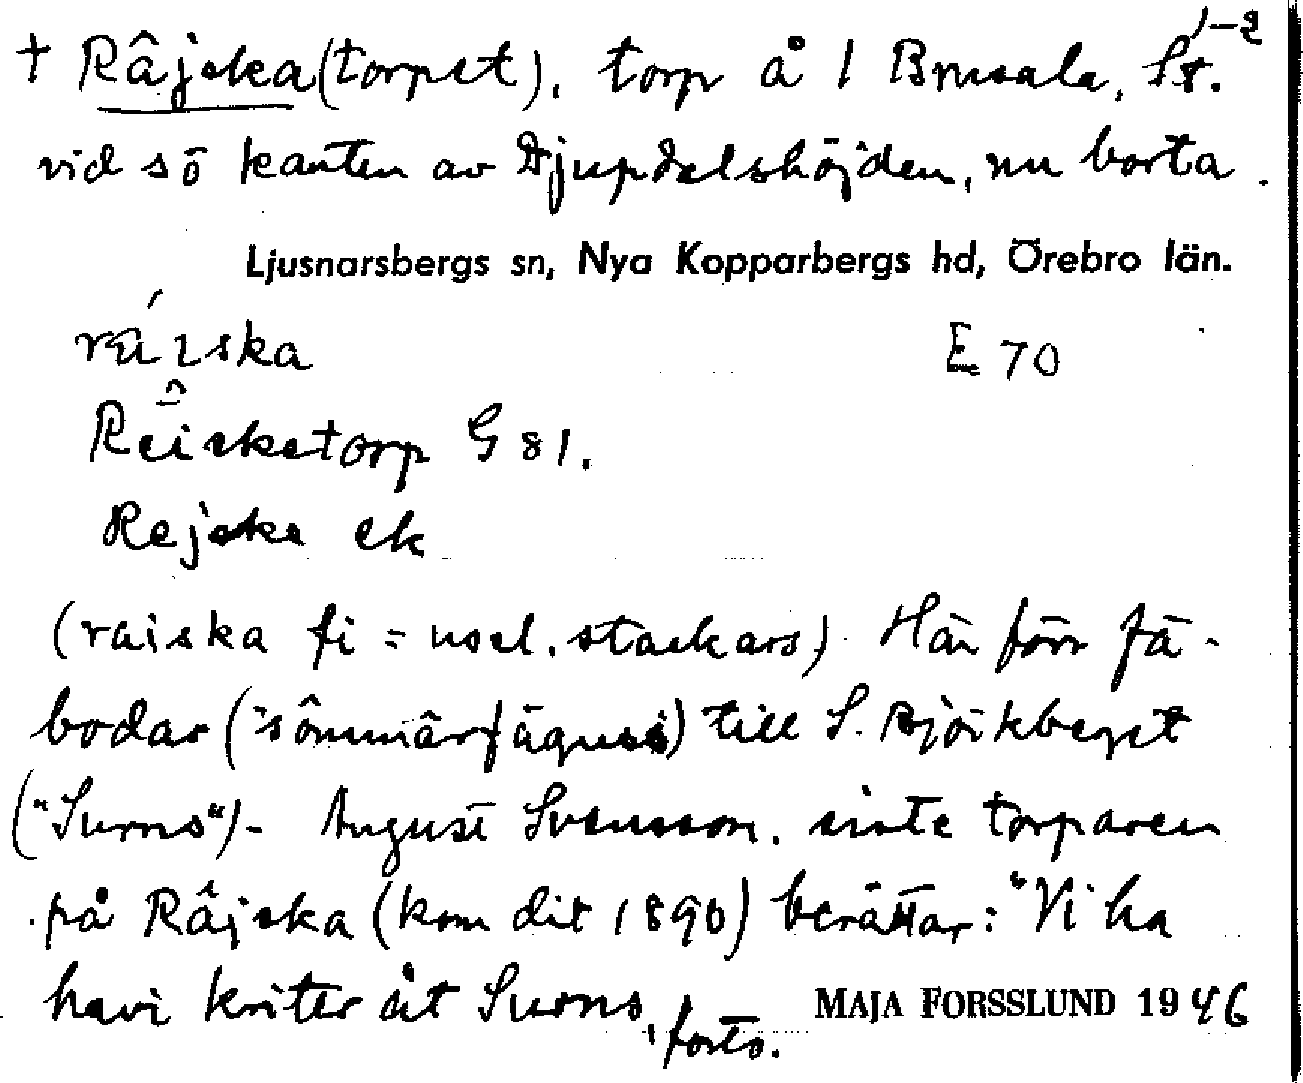 1-2
† Râjska (torpet), torp å 1 Brusala, St.
vid sö kanten av Djupdelshöjden, nu borta.
Ljusnarsbergs sn, Nya Kopparbergs hd, Örebro län.
ska E 70
torp G 81.
Rejska ek
(raiska fi = usel, stackars). Här förr fä-
bodar ( ) till S. Björkberget
("Surns")- August Svensson, siste torparen
på Râjska (kom dit 1890) berättar: "Vi ha
havi kritter åt Surns, forts. MAJA FORSSLUND 1946